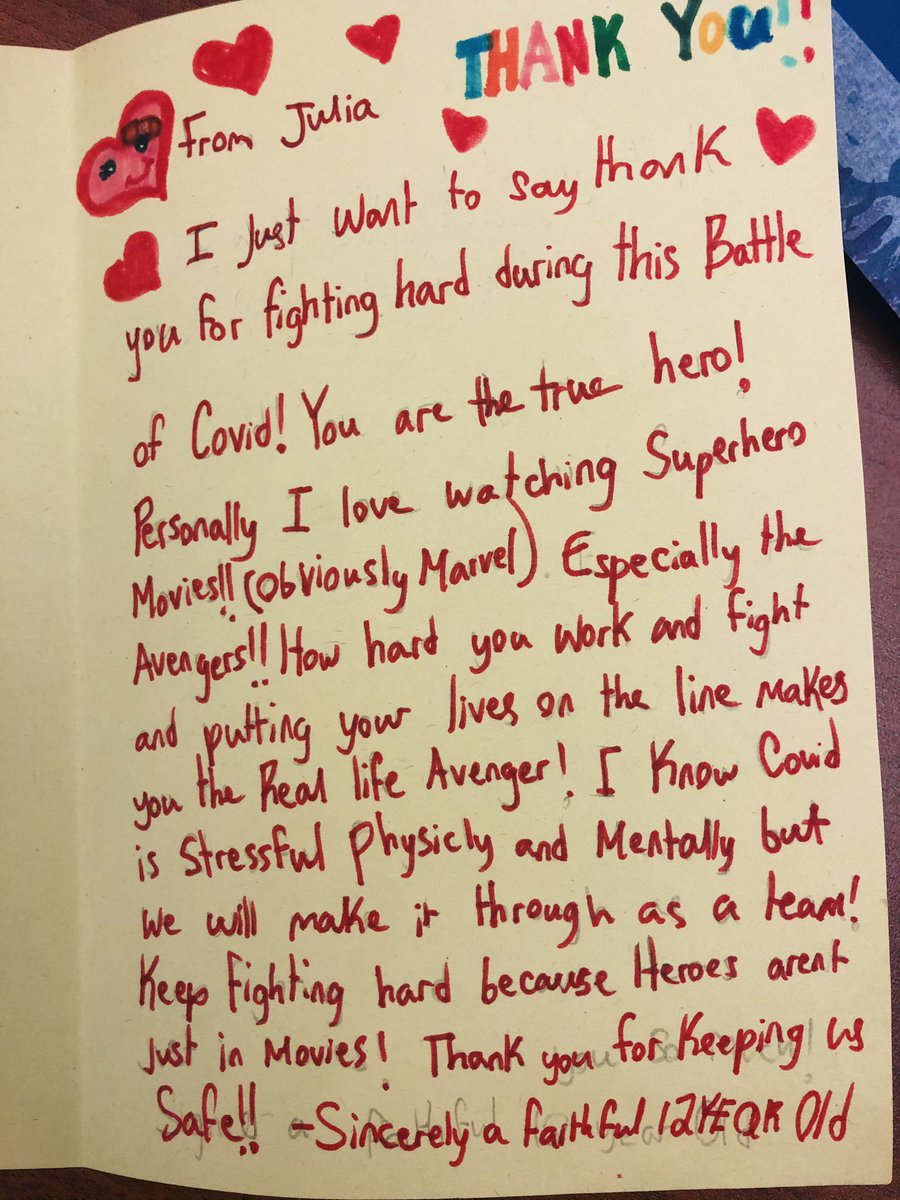 THANK YOU!!
From Julia
I Just want to say thank
you for fighting hard during this Battle
of Covid! You are the true hero!
Personally I love watching Superhero
Movies!! (Obviously Marvel) Especially the
Avengers!! How hard you work and fight
and putting your lives on the line makes
you the Real life Avenger! I Know Covid
is Stressful physicly and Mentally but
We will make it through as a team!
Keep Fighting hard because Heroes arent
Just in Movies! Thank you for Keeping us
Safe!! -Sincerely a faithful 12 YEAR Old